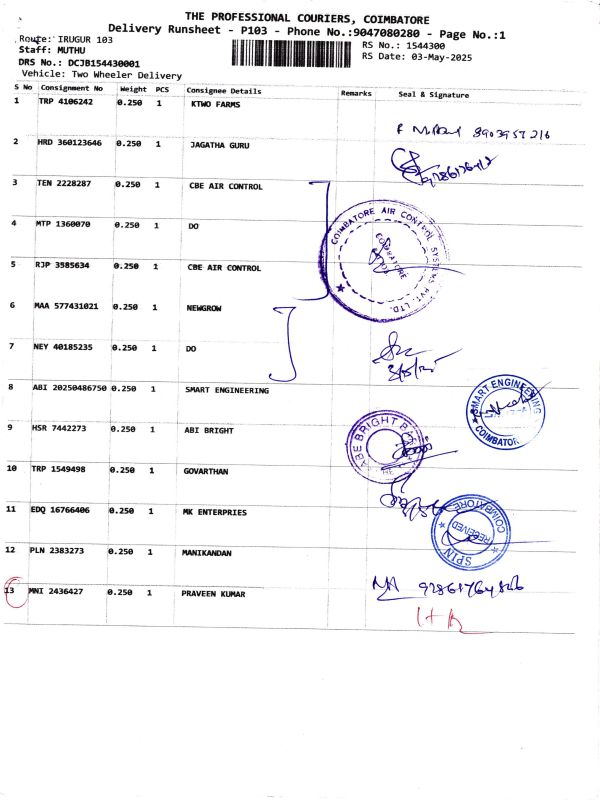 THE PROFESSIONAL COURIERS, COIMBATORE
Delivery Runsheet - P103 - Phone No.:9047080280 - Page No.:1
Route: IRUGUR 103
RS No.: 1544300
Staff: MUTHU
RS Date: 03-May-2025
DRS No.: DCJB154430001
Vehicle: Two Wheeler Delivery
S No Consignment No Weight PCS Consignee Details Remarks Seal & Signature
1 TRP 4106242 0.250 1 KTWO FARMS
2 HRD 360123646 0.250 1 JAGATHA GURU
3 TEN 2228287 0.250 1 CBE AIR CONTROL
4 MTP 1360070 0.250 1 DO
COIMBATORE AIR CONTROL SYSTEMS PVT. LTD.
COIMBATORE
5 RJP 3585634 0.250 1 CBE AIR CONTROL
6 MAA 577431021 0.250 1 NEWGROW
7 NEY 40185235 0.250 1 DO
8 ABI 20250486750 0.250 1 SMART ENGINEERING
SMART ENGINEERING
COIMBATORE
9 HSR 7442273 0.250 1 ABI BRIGHT
ABE BRIGHT
10 TRP 1549498 0.250 1 GOVARTHAN
11 EDQ 16766406 0.250 1 MK ENTERPRIES
SPIN COIMBATORE
RECEIVED
12 PLN 2383273 0.250 1 MANIKANDAN
13 MNI 2436427 0.250 1 PRAVEEN KUMAR